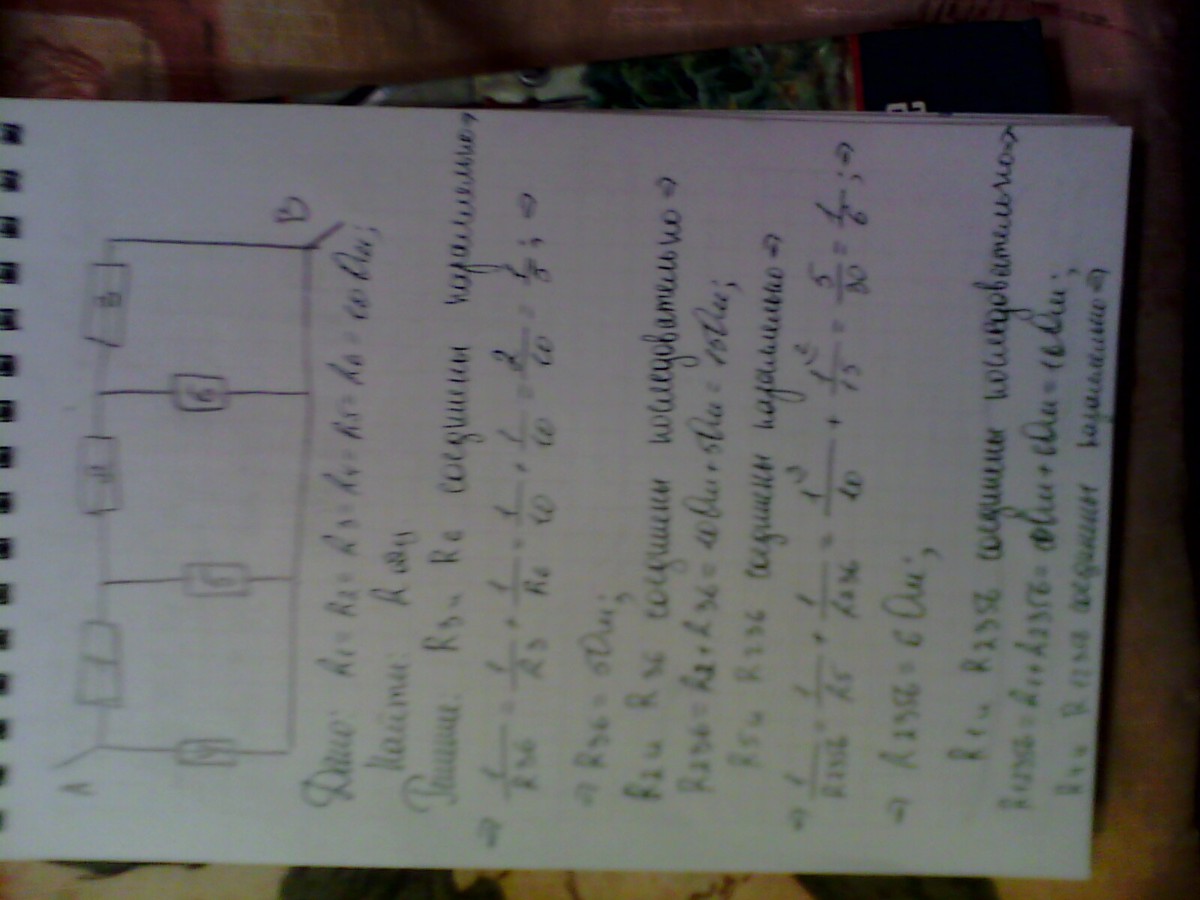 A
1
2
3
4
5
6
B
Дано: R1 = R2 = R3 = R4 = R5 = R6 = 10 Ом;
Найти: R
Решние: R3 и R6 соединины паралельно ⇒
⇒ 1/R36 = 1/R3 + 1/R6 = 1/10 + 1/10 = 2/10 = 1/5; ⇒
⇒ R36 = 5 Ом;
R2 и R36 соединины последовательно ⇒
R236 = R2 + R36 = 10 Ом + 5 Ом = 15 Ом;
R5 и R236 соединины паралельно ⇒
⇒ 1/R2356 = 1/R5 + 1/R236 = 1/10 + 1/15 = 5/30 = 1/6; ⇒
⇒ R2356 = 6 Ом;
R1 и R2356 соединины последовательно ⇒
R12356 = R1 + R2356 = 10 Ом + 6 Ом = 16 Ом;
R4 и R12356 соединины паралельно ⇒